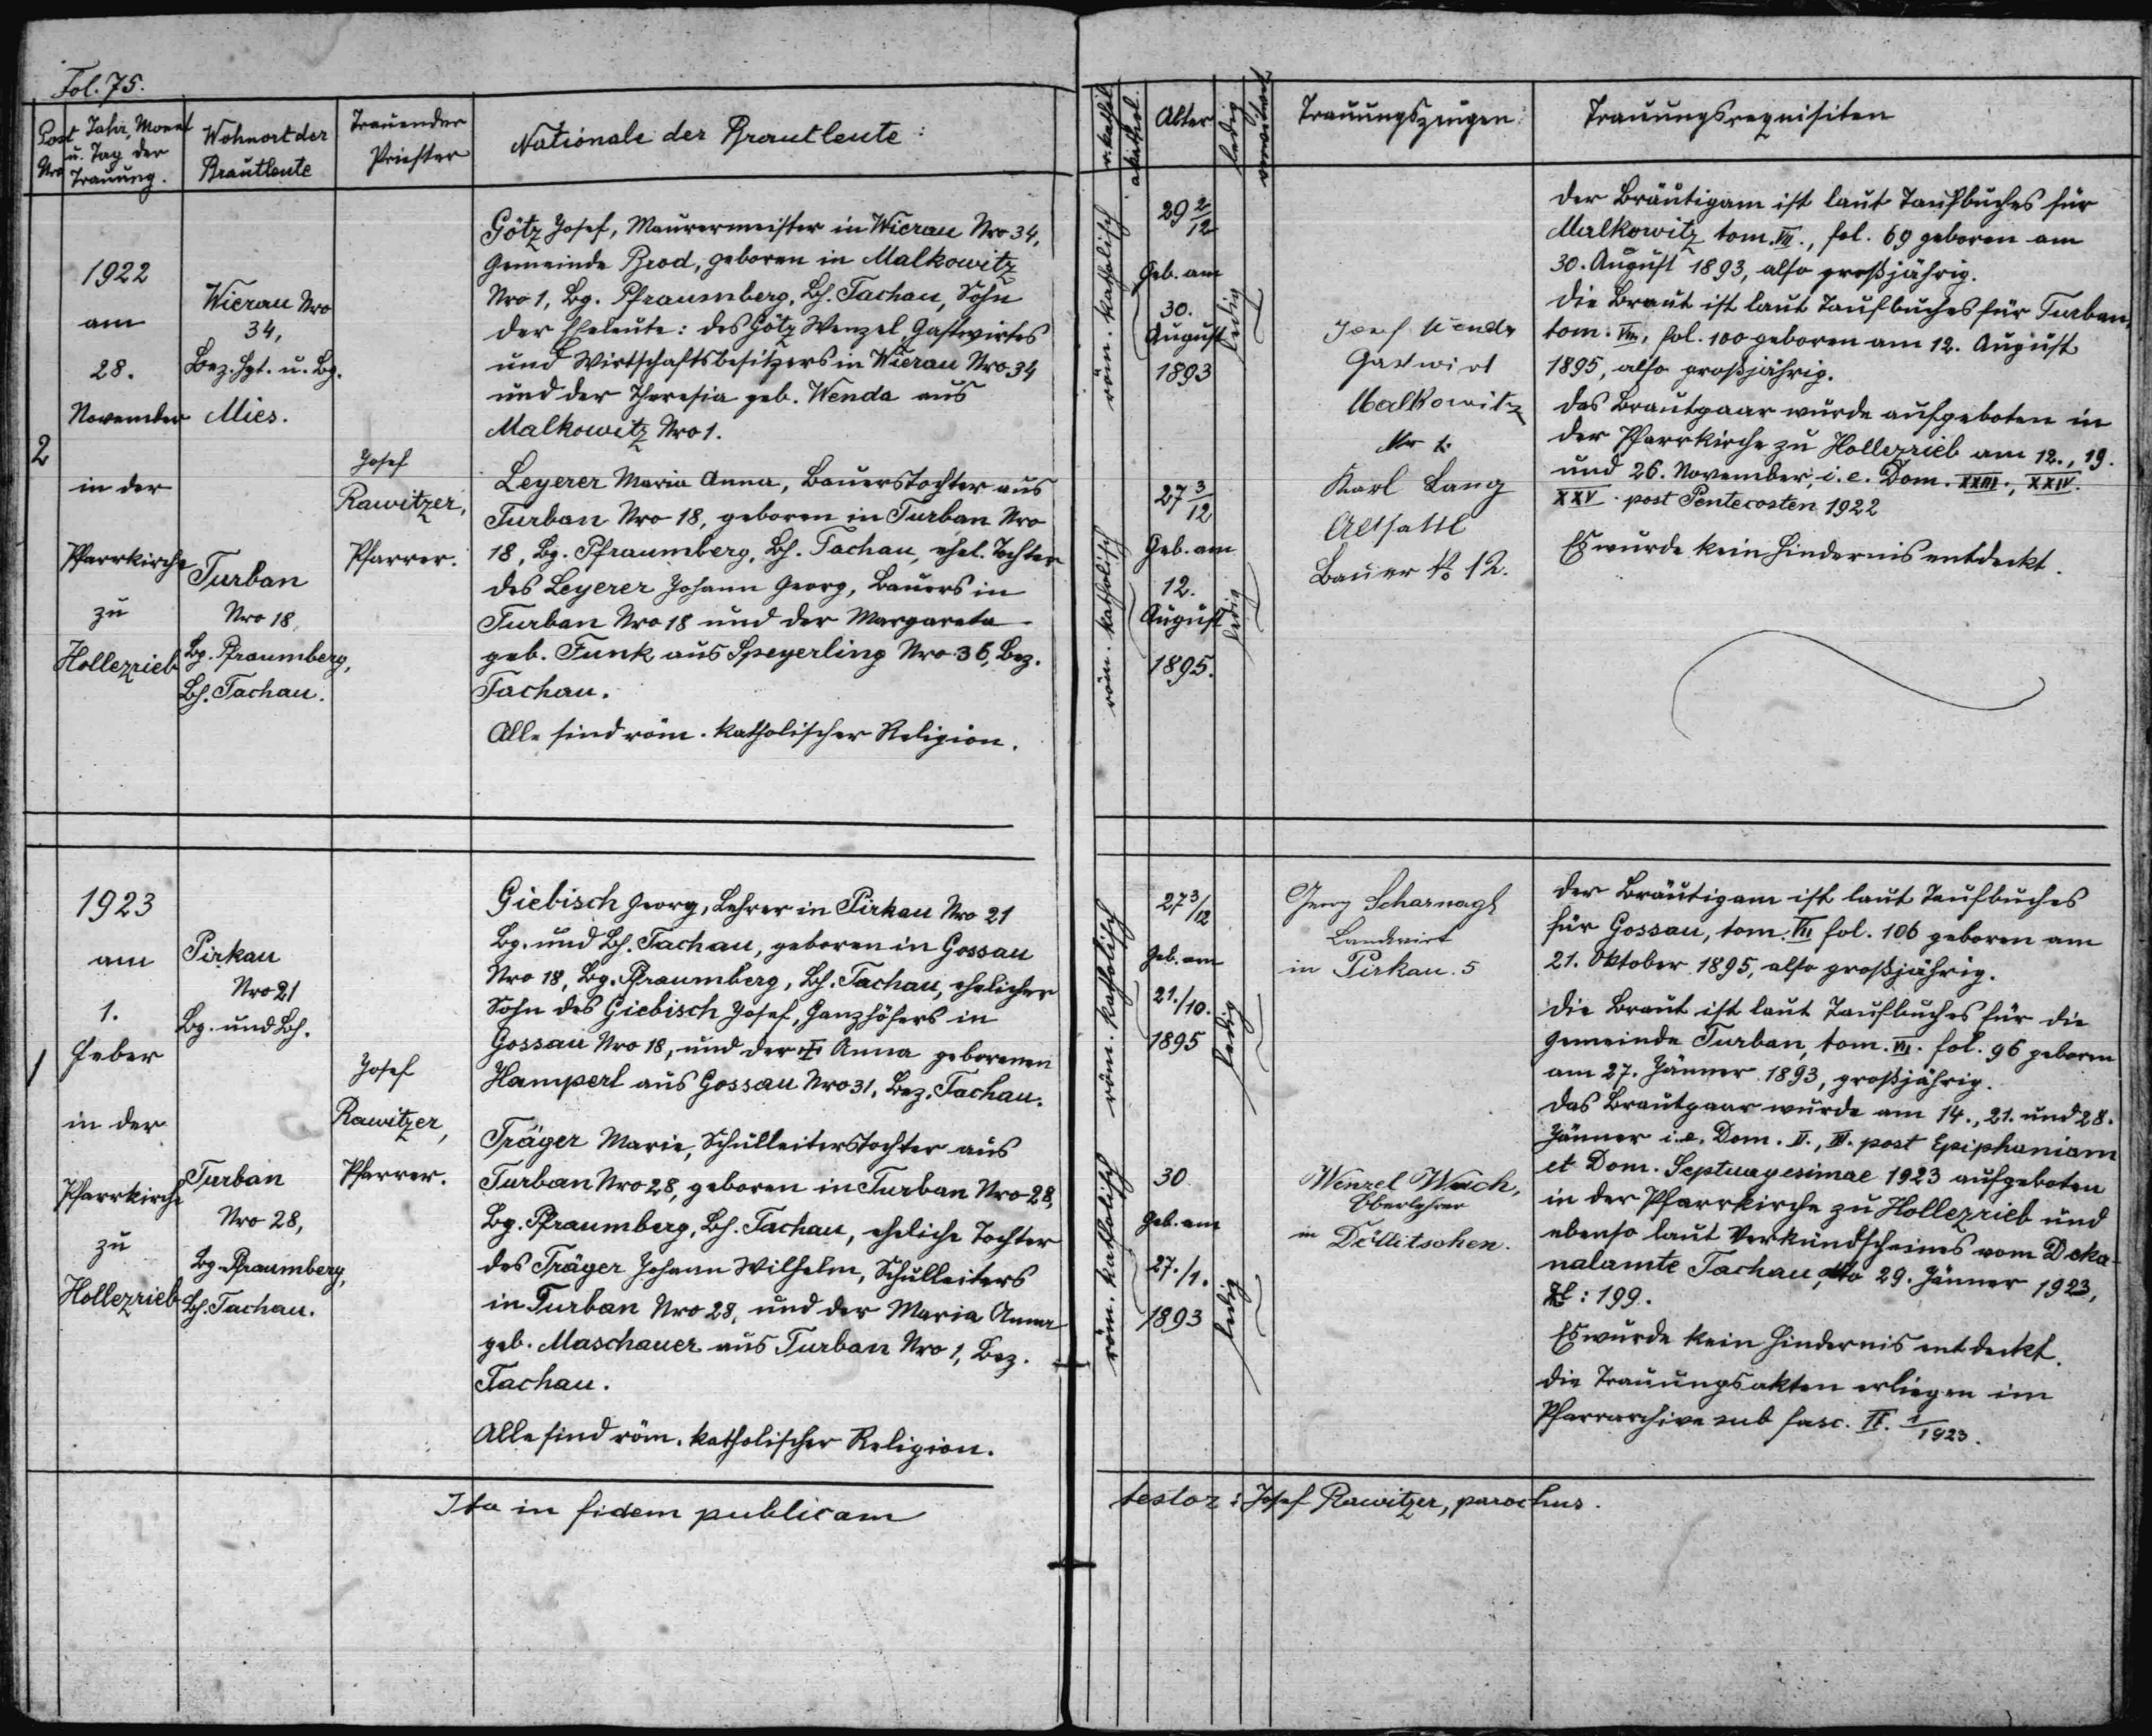 Fol. 75.
Post Nro
Jahr, Monat u. Tag der Trauung.
Wohnort der Brautleute
Trauender Priester
Nationale der Brautleute:
r. kathol.
akathol.
Alter
ledig
verwitwet
Trauungszeugen:
Trauungsrequisiten
2
1922
am
28.
November
in der
Pfarrkirche
zu
Hollezrieb
Wierau Nro
34,
Bez. Hpt. u. Bg.
Mies.
Turban
Nro 18,
Bg. Pfraumberg,
Bh. Tachau.
Josef
Rawitzer,
Pfarrer.
Götz Josef, Maurermeister in Wierau Nro 34,
Gemeinde Brod, geboren in Malkowitz
Nro 1, Bg. Pfraumberg, Bh. Tachau, Sohn
der Eheleute: des Götz Wenzel, Gastwirtes
und Wirtschaftsbesitzers in Wierau Nro 34
und der Theresia geb. Wenda aus
Malkowitz Nro 1.
Leyerer Maria Anna, Bauerstochter aus
Turban Nro 18, geboren in Turban Nro
18, Bg. Pfraumberg, Bh. Tachau, ehel. Tochter
des Leyerer Johann Georg, Bauers in
Turban Nro 18 und der Margareta
geb. Funk aus Speyerling Nro 36, Bez.
Tachau.
Alle sind röm. katholischer Religion.
röm. katholisch
29 2/12
Geb. am
30.
August
1893
ledig
röm. katholisch
27 3/12
Geb. am
12.
August
1895.
ledig
Josef Wenda
Gastwirt
Malkowitz
Nr 1.
Karl Lang
Altsattl
Bauer No 12.
Der Bräutigam ist laut Taufbuches für
Malkowitz tom. VII., fol. 69 geboren am
30. August 1893, also großjährig.
Die Braut ist laut Taufbuches für Turban,
tom. VII., fol. 100 geboren am 12. August
1895, also großjährig.
Das Brautpaar wurde aufgeboten in
der Pfarrkirche zu Hollezrieb am 12., 19.
und 26. November, i. e. Dom. XXIII., XXIV.
XXV. post Pentecosten 1922
Es wurde kein Hindernis entdeckt.
1
1923
am
1.
Feber
in der
Pfarrkirche
zu
Hollezrieb
Pirkau
Nro 21
Bg. und Bh.
Turban
Nro 28,
Bg. Pfraumberg,
Bh. Tachau.
Josef
Rawitzer,
Pfarrer.
Giebisch Georg, Lehrer in Pirkau Nro 21
Bg. und Bh. Tachau, geboren in Gossau
Nro 18, Bg. Pfraumberg, Bh. Tachau, ehelicher
Sohn des Giebisch Josef, Ganzhöfers in
Gossau Nro 18, und der ✠ Anna geborenen
Hamperl aus Gossau Nro 31, Bez. Tachau.
Träger Marie, Schulleiterstochter aus
Turban Nro 28, geboren in Turban Nro 28,
Bg. Pfraumberg, Bh. Tachau, eheliche Tochter
des Träger Johann Wilhelm, Schulleiters
in Turban Nro 28, und der Maria Anna
geb. Maschauer aus Turban Nro 1, Bez.
Tachau.
Alle sind röm. katholischer Religion.
röm. katholisch
27 3/12
Geb. am
21./10.
1895
ledig
röm. katholisch
30
Geb. am
27./1.
1893
ledig
Georg Scharnagl
Landwirt
in Pirkau. 5
Wenzel
Oberlehrer
in Döllitschen.
Der Bräutigam ist laut Taufbuches
für Gossau, tom. VII fol. 106 geboren am
21. Oktober 1895, also großjährig.
Die Braut ist laut Taufbuches für die
Gemeinde Turban, tom. VII. fol. 96 geboren
am 27. Jänner 1893, großjährig.
Das Brautpaar wurde am 14., 21. und 28.
Jänner i. e. Dom. II., III. post Epiphaniam
et Dom. Septuagesimae 1923 aufgeboten
in der Pfarrkirche zu Hollezrieb und
ebenso laut Verkündscheines vom Deka-
nalamte Tachau, dto 29. Jänner 1923,
Zl: 199.
Es wurde kein Hindernis entdeckt.
Die Trauungsakten erliegen im
Pfarrarchive sub fasc. II. 1/1923.
Ita in fidem publicam
testor: Josef Rawitzer, parochus.